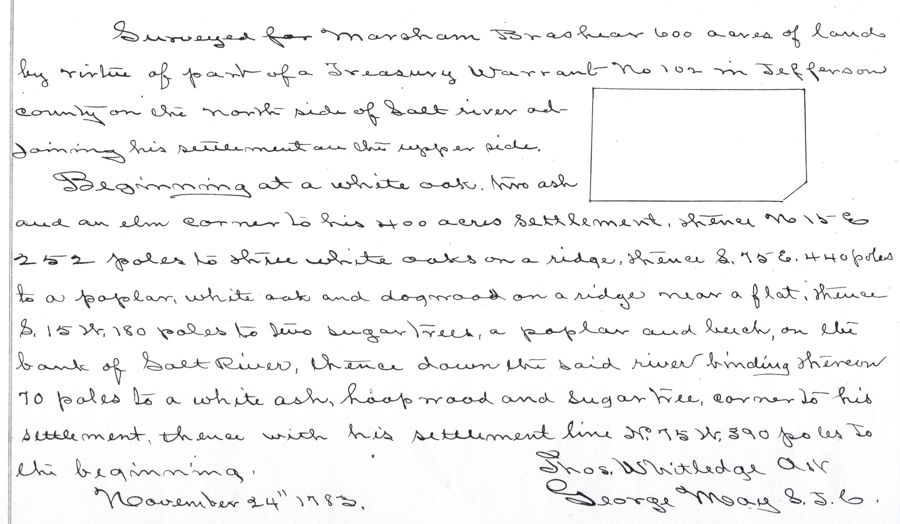 Surveyed for Marsham Brashear 600 acres of land
by virtue of part of a Treasury Warrant No 102 in Jefferson
county on the north side of Salt river ad-
joining his settlement on the upper side.
Beginning at a white oak, two ash
and an elm corner to his 400 acres settlement, thence N 15 E
252 poles to three white oaks on a ridge, thence S. 75 E. 440 poles
to a poplar, white oak and dogwood on a ridge near a flat, thence
S. 15 W. 180 poles to two sugar trees, a poplar and beech, on the
bank of Salt River, thence down the said river binding thereon
70 poles to a white ash, hoopwood and sugar tree, corner to his
settlement, thence with his settlement line N. 75 W. 390 poles to
the beginning.
Thos. Whitledge Ast
November 24" 1783.
George May S. J. C.